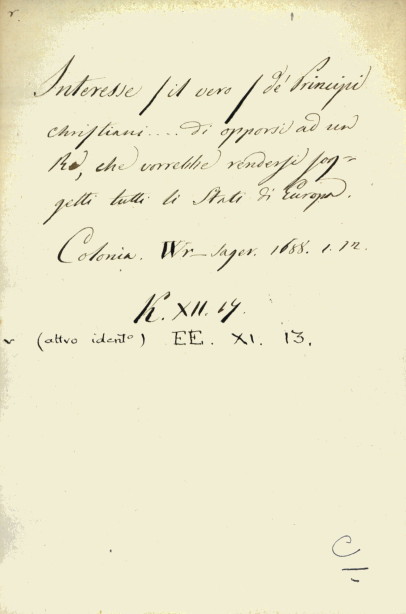 Interesse /il vero/ de' Principi
christiani.... di opporsi ad un
Rè, che vorrebbe rendersi sog=
getti tutti li Stati di Europa.
Colonia. 1688. 1. 12.
K. XII. 19.
(altro ident°) EE. XI. 13.
C